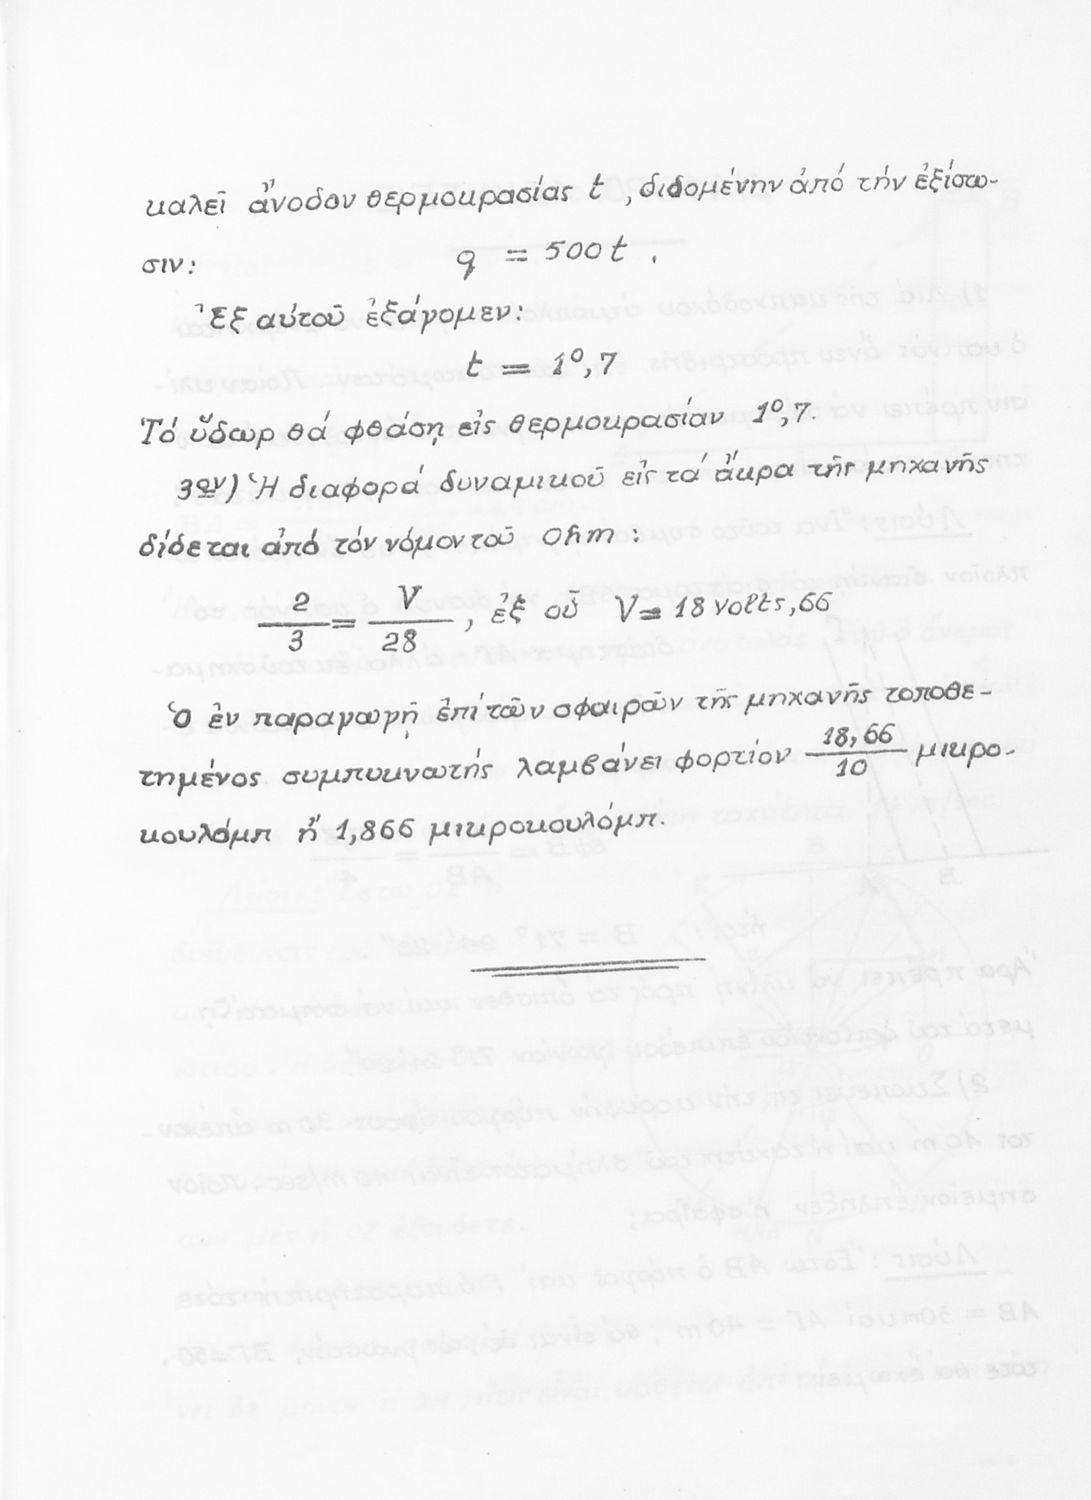 καλεῖ ἄνοδον θερμοκρασίας t , διδομένην ἀπό τήν ἐξίσω-
σιν: q = 500 t .
Ἐξ αὐτοῦ ἐξάγομεν:
t = 1⁰,7
Τό ὕδωρ θά φθάσῃ εἰς θερμοκρασίαν 1⁰,7.
3ον) Ἡ διαφορά δυναμικοῦ εἰς τά ἄκρα τῆς μηχανῆς
δίδεται ἀπό τόν νόμον τοῦ Ohm :
2/3 = V/28 , ἐξ οὗ V = 18 volts,66
Ὁ ἐν παραγωγῇ ἐπί τῶν σφαιρῶν τῆς μηχανῆς τοποθε-
τημένος συμπυκνωτής λαμβάνει φορτίον 18,66/10 μικρο-
κουλόμπ ἤ 1,866 μικροκουλόμπ.